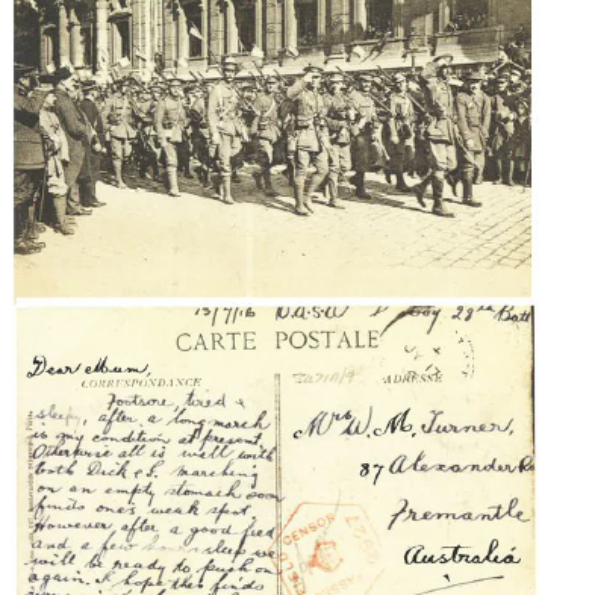 13/7/16 O.A.S.W 28th Batt
CARTE POSTALE
Dear Mum,
CORRESPONDANCE
ADRESSE
Footsore, tired &
sleepy, after a long march
is my condition at present,
Otherwise all is well with
both Dick & I. marching
on an empty stomach soon
finds ones weak spot.
However after a good feed
and a few hours sleep we
will be ready to push on
again. I hope this finds
Mrs W. M. Turner,
87 Alexander
Fremantle
Australia
CENSOR